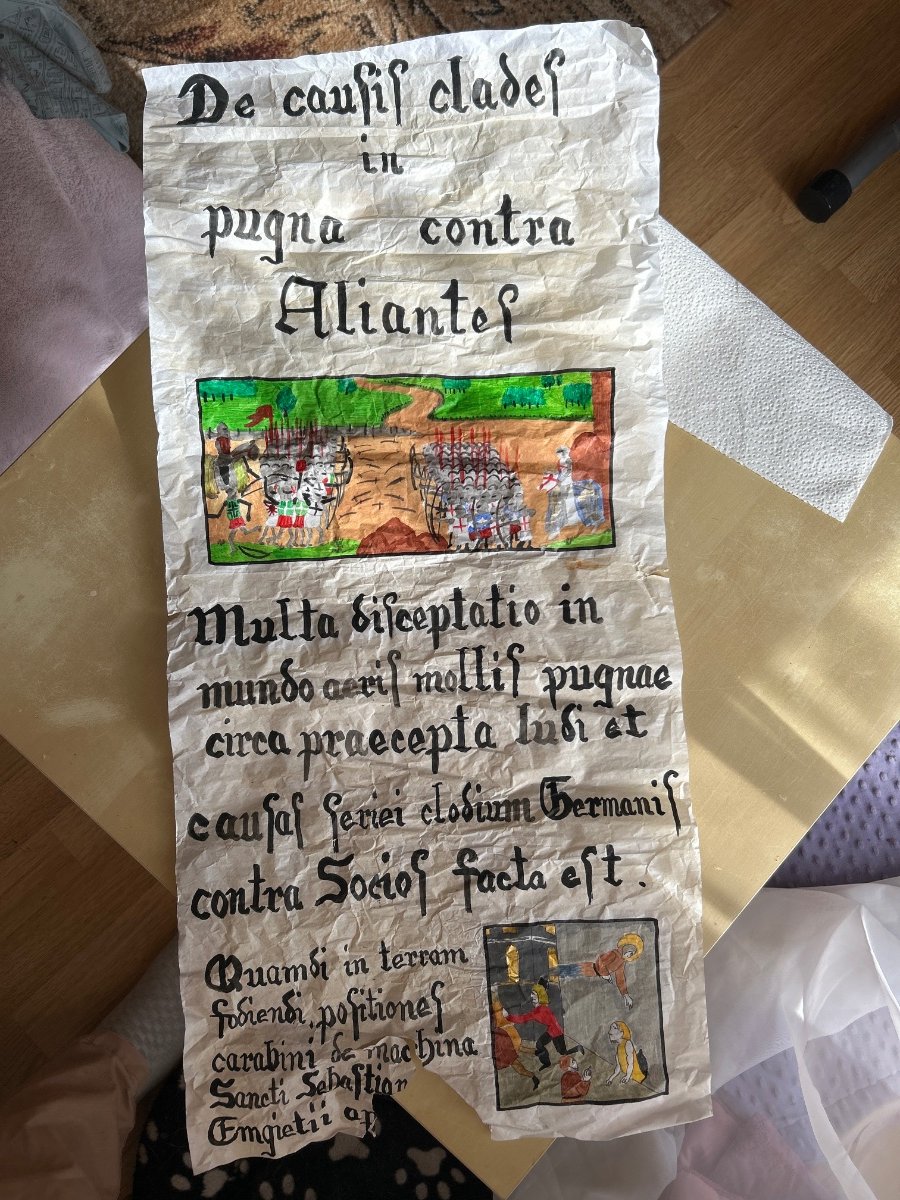 De causis clades
in
pugna contra
Aliantes
Multa disceptatio in
mundo aeris mollis pugnae
circa praecepta ludi et
causas seriei clodium Germanis
contra Socios facta est.
Quamdi in terram
fodiendi, positiones
carabini de machina
Sancti Sebastian
Emgietii ap